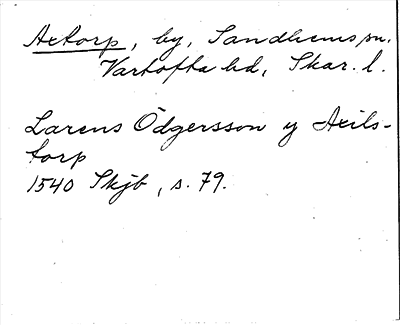 Axtorp, by, Sandhems sn.
Vartofta hd, Skar. l.
Larens Ödgersson y Axils-
torp
1540 Skjb, s. 79.